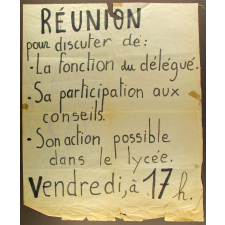 RÉUNION
pour discuter de:
- La fonction du délégué.
- Sa participation aux
conseils.
- Son action possible
dans le lycée.
Vendredi, à 17 h.